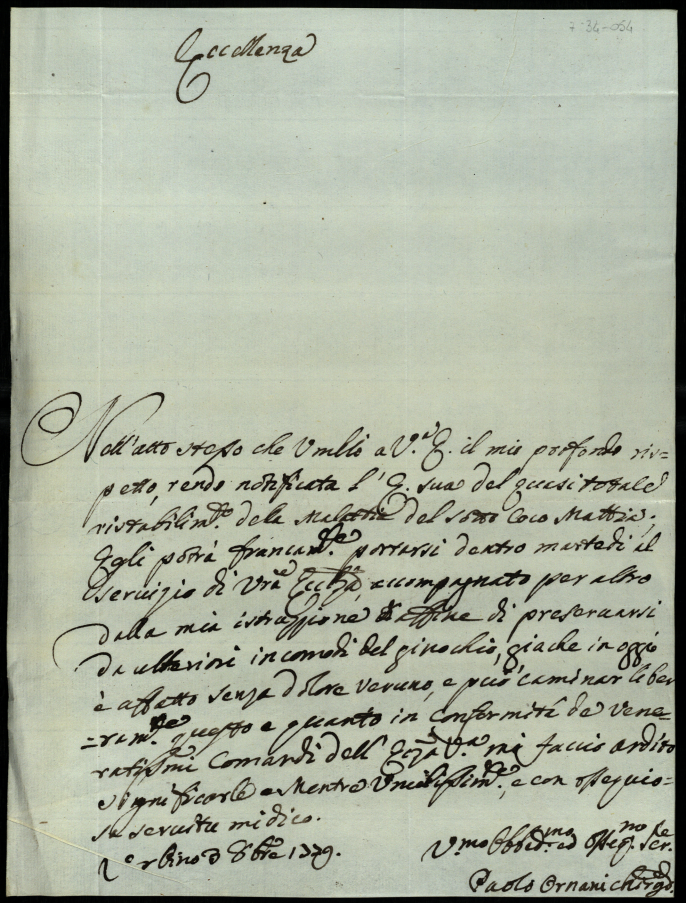 7-34-054
Eccellenza
Nell'atto stesso che Umilio a V.ª E. il mio profondo ris=
petto, rendo notificata l'E. sua del quasi totale
ristabilim.to dela Malattia del sotto Coco Mattia;
Egli potrà francam.te portarsi dentro martedì al
servizio di Vrã Ecc.za, accompagnato per altro
dalla mia istruzzione affine di preservarsi
da ulteriori incomodi del ginochio, giache in oggi
è affatto senza dolore veruno, e può caminar liber
=ram.te questo e quanto in conformità de vene=
ratissimi Comandi dell' Ecc.za V.ª mi faccio ardito
significarle e Mentre Umilissim.te, e con ossequio=
sa servitù mi dico.
3 8bre 1779.
V.mo Obbid.mo ed Osseq.mo Ser.re
Paolo Ornani